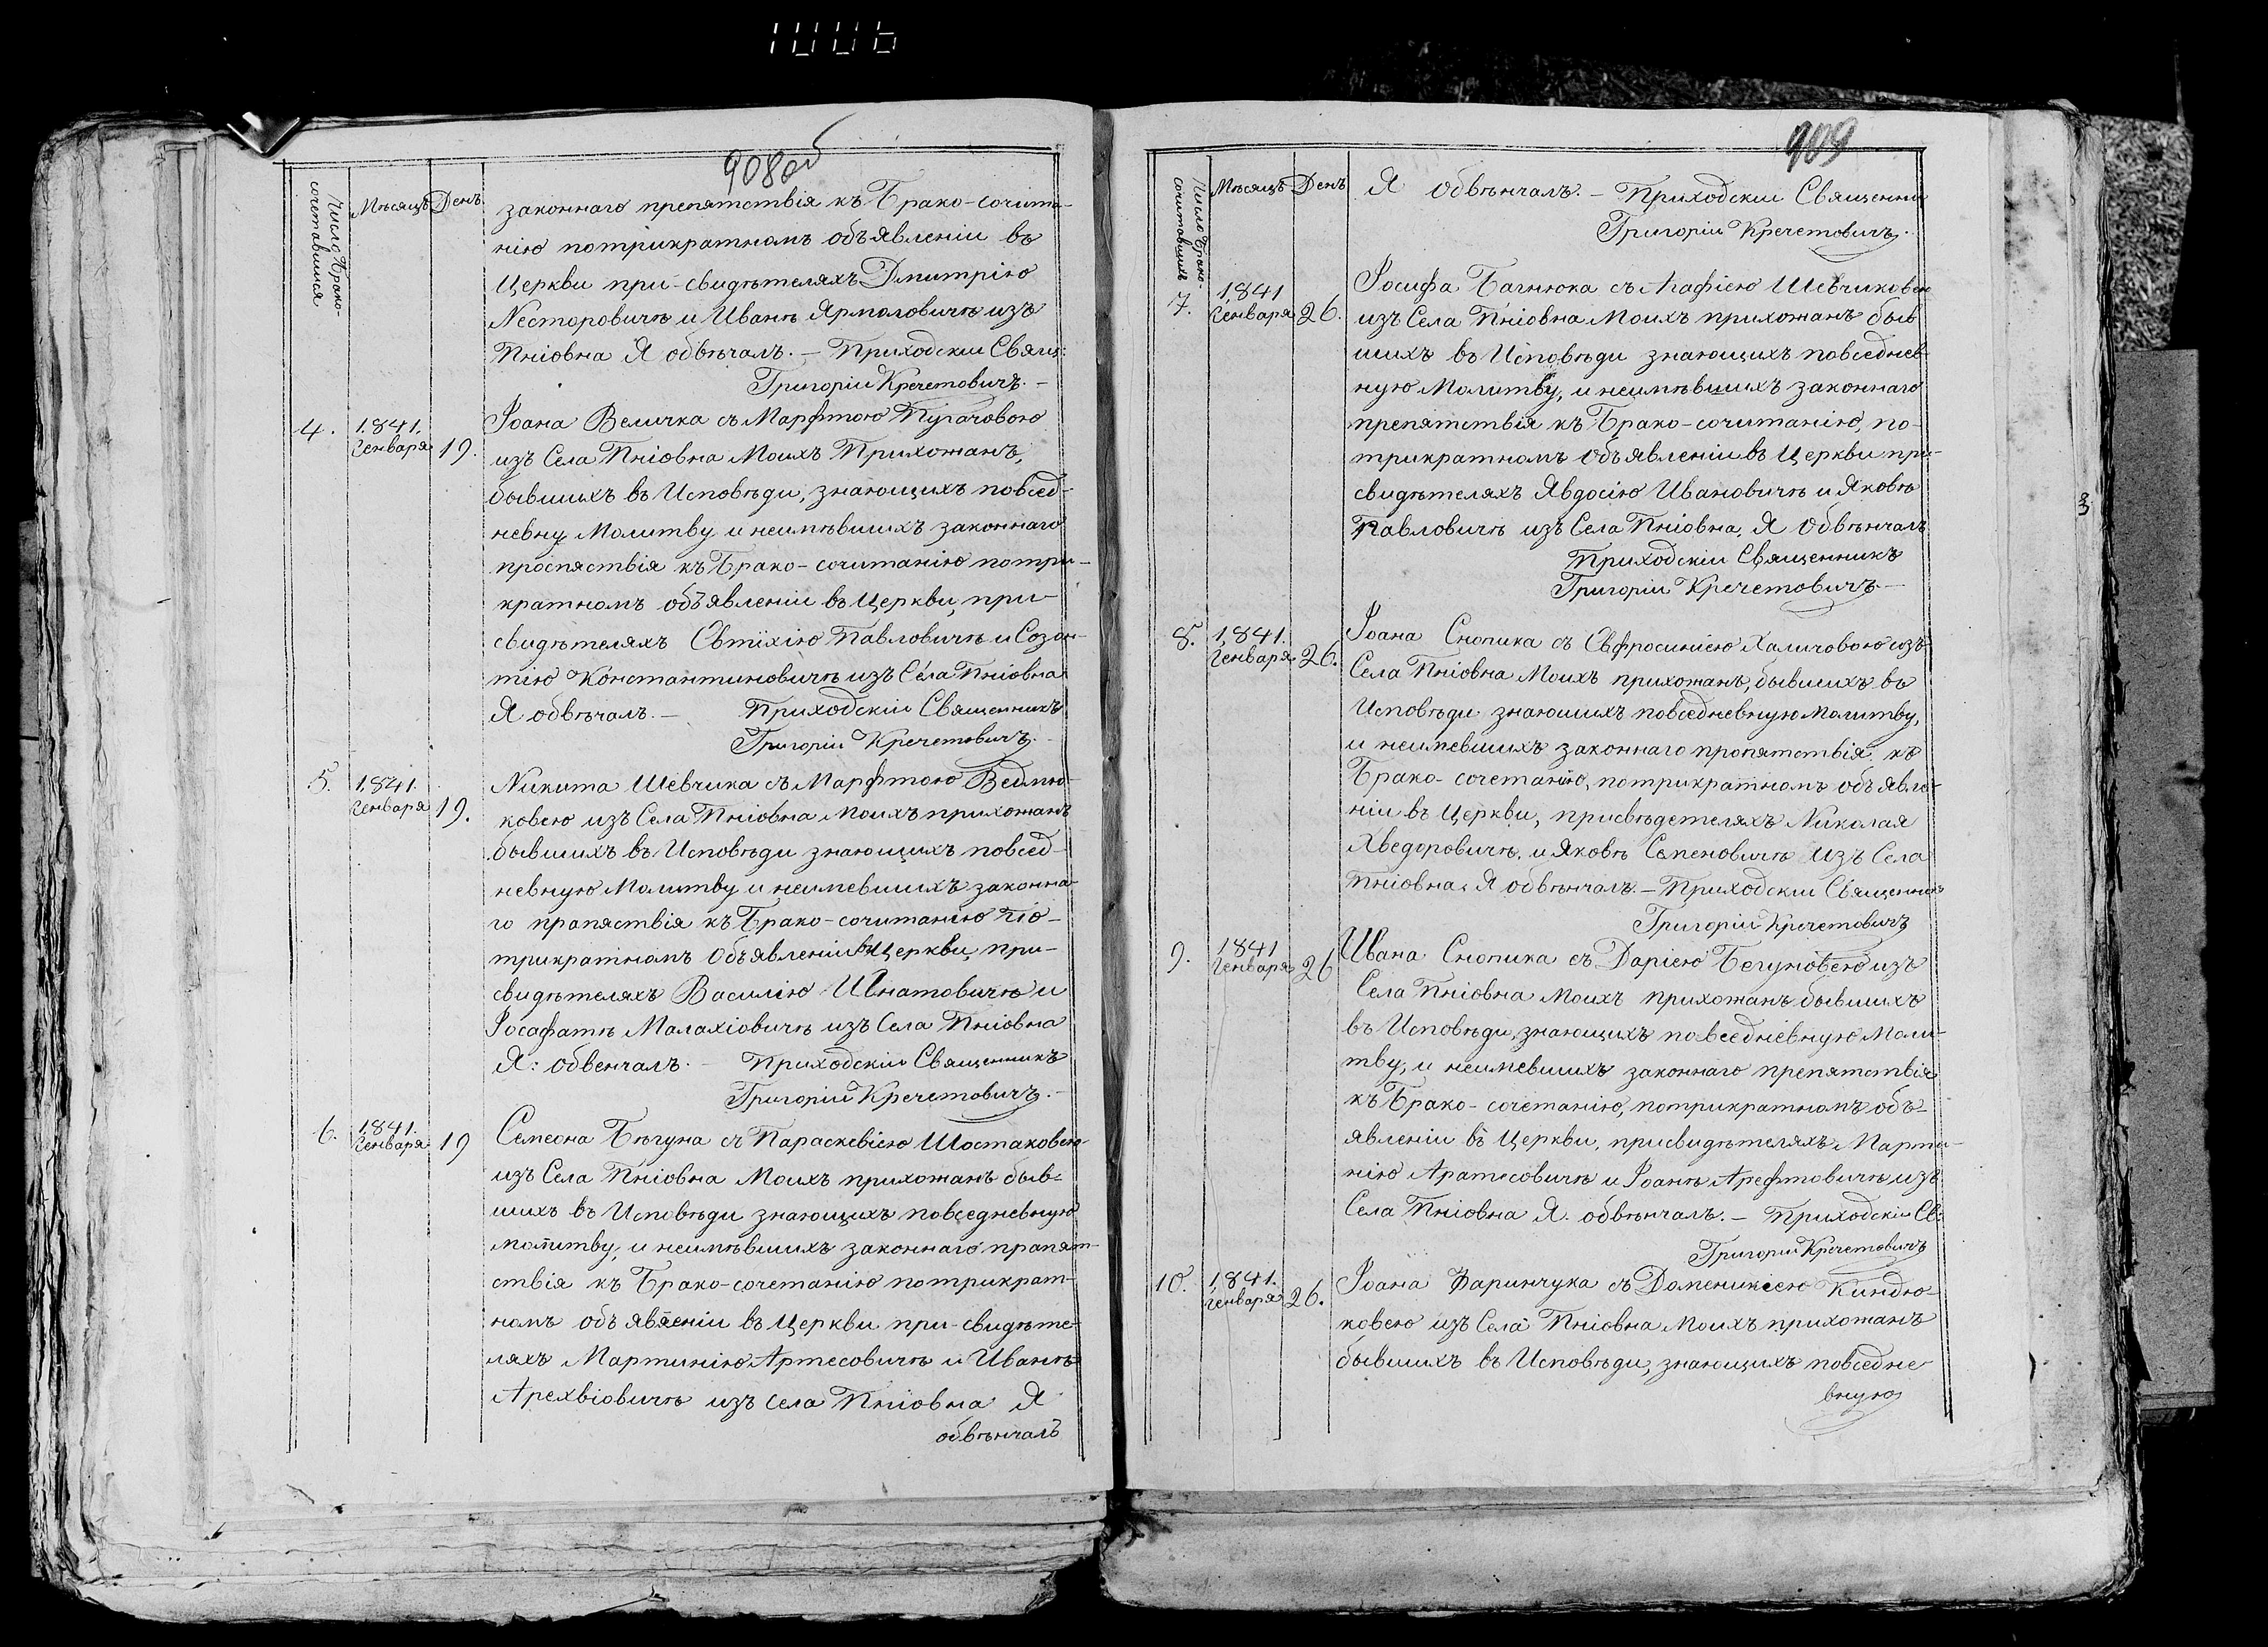 1006
908об
Число Брако-
сочетавшихся
Мѣсяцъ
День
законнаго препятствія къ Брако-сочита-
нію потрикратномъ объявленіи въ
Церкви при-свидѣтеляхъ Дмитрію
Несторовичѣ и Иванѣ Ярмоловичѣ изъ
Пніовна Я обвѣчалъ. – Приходскіи Свящ:
Григоріи Кречетовичъ. –
4.
1841.
Генваря
19.
Іоана Величка съ Марфтою Пугачовою
изъ Села Пніовна Моихъ Прихожанъ,
бывшихъ въ Исповѣди, знающихъ повсед-
невну Молитву и неимѣвшихъ законнаго
проспяствія къ Брако-сочитанію потри-
кратномъ объявленіи въ Церкви, при-
свидѣтеляхъ Євтіхію Павловичѣ и Созон-
тію Константиновичѣ изъ Села Пніовна
Я обвѣчалъ. – Приходскіи Священникъ
Григоріи Кречетовичъ. –
5.
1841.
Генваря
19.
Никита Шевчика съ Марфтою Ведмю-
ковею изъ Села Пніовна Моихъ прихожанъ
бывшихъ въ Исповѣди знающихъ повсед-
невную Молитву и неимевшихъ законна-
го прапяствія къ Брако-сочитанію по-
трикратномъ Объявленіи въ Церкви, при-
свидѣтеляхъ Василію Игнатовичѣ и
Іосафатѣ Малахіовичѣ изъ Села Пніовна
Я: обвенчалъ. – Приходскіи Священникъ
Григоріи Кречетовичъ. –
6.
1841.
Генваря
19
Семеона Бѣгуна съ Параскевіею Шостаковею
изъ Села Пніовна Моихъ прихожанъ быв-
шихъ въ Исповѣди знающихъ повседневную
молитву, и неимѣвшихъ законнаго прапят-
ствія къ Брако-сочетанію потрикрат-
номъ объявленіи въ Церкви при-свидѣте-
ляхъ Мартинію Артесовичѣ и Иванѣ
Арехвіовичѣ изъ села Пніовна Я
обвѣнчалъ
909
Число Брако-
сочитавшихъ
Мѣсяцъ
День
Я обвѣнчалъ. – Приходскіи Священни
Григоріи Кречетовичъ.
7.
1841
Генваря
26.
Іосифа Багнюка съ Агафіею Шевчиковею
изъ Села Пніовна Моихъ прихожанъ быв
шихъ въ Исповѣди знающихъ повседнев-
ную Молитву, и неимѣвшихъ законнаго
препятствія къ Брако-сочитанію, по-
трикратномъ Объявленіи въ Церкви при-
свидѣтеляхъ Явдосію Ивановичѣ и Яковѣ
Павловичѣ изъ Села Пніовна, Я Обвѣнчалъ
Приходскіи Священникъ
Григоріи Кречетовичъ –
8.
1841.
Генваря
26.
Іоана Снопика съ Євфросиніею Халичовою изъ
Села Пніовна Моихъ прихожанъ, бывшихъ въ
Исповѣди знаюшихъ повседневную Молитву,
и неимевшихъ законнаго пропятствія къ
Брако-сочетанію, потрикратномъ объявле-
ніи въ Церкви, присвѣдетеляхъ Николая
Хведоровичѣ, и Яковѣ Семеновичѣ Изъ Села
Пніовна, Я обвѣнчалъ. – Приходскіи Священникъ
Григоріи Кречетовичъ
9.
1841
Генваря
26
Ивана Снопика съ Даріею Бегуновею изъ
Села Пніовна Моихъ прихожанъ бывшихъ
въ Исповѣди, знающихъ повседневную Моли-
тву, и неимевшихъ законнаго препятствія
къ Брако-сочетанію, потрикратномъ объ-
явленіи въ Церкви, присвидѣтеляхъ Марти-
нію Аратесовичѣ и Іоанѣ Арефтовичѣ изъ
Села Пніовна Я. обвѣнчалъ. – Приходскіи Св:
Григоріи Кречетовичъ
10.
1841.
Генваря
26.
Іоана Фаринчука съ Доменикіею Киндю-
ковею изъ Села Пніовна Моихъ прихожанъ
бывшихъ въ Исповѣди, знающихъ повседне-
вную